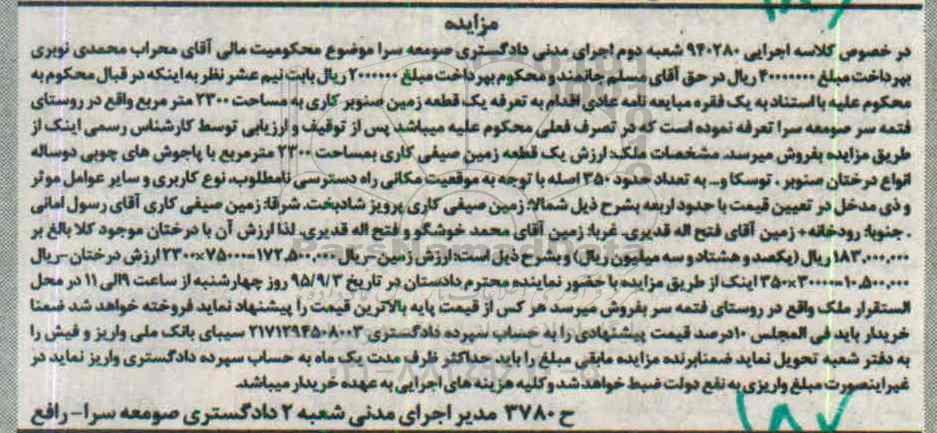 مزایده
در خصوص کلاسه اجرایی ۹۴۰۲۸۰ شعبه دوم اجرای مدنی دادگستری صومعه سرا موضوع محکومیت مالی آقای محراب محمدی نویری
بپرداخت مبلغ ۴۰۰۰۰۰۰۰ ریال در حق آقای مسلم جانمند و محکوم بپرداخت مبلغ ۲۰۰۰۰۰۰ ریال بابت نیم عشر نظر به اینکه در قبال محکوم به
محکوم علیه با استناد به یک فقره مبایعه نامه عادی اقدام به تعرفه یک قطعه زمین صنوبر کاری به مساحت ۲۳۰۰ متر مربع واقع در روستای
فتمه سر صومعه سرا تعرفه نموده است که در تصرف فعلی محکوم علیه میباشد پس از توقیف و ارزیابی توسط کارشناس رسمی اینک از
طریق مزایده بفروش میرسد. مشخصات ملک: ارزش یک قطعه زمین صیفی کاری بمساحت ۲۳۰۰ مترمربع با پاجوش های چوبی دوساله
انواع درختان صنوبر، توسکا و... به تعداد حدود ۳۵۰ اصله با توجه به موقعیت مکانی راه دسترسی نامطلوب، نوع کاربری و سایر عوامل موثر
و ذی مدخل در تعیین قیمت با حدود اربعه بشرح ذیل شمالا: زمین صیفی کاری پرویز شادبخت. شرقا: زمین صیفی کاری آقای رسول امانی
. جنوبا: رودخانه+ زمین آقای فتح اله قدیری. غربا: زمین آقای محمد خوشگو و فتح اله قدیری. لذا ارزش آن با درختان موجود کلا بالغ بر
۱۸۳,۰۰۰,۰۰۰ ریال (یکصد و هشتاد و سه میلیون ریال) و بشرح ذیل است: ارزش زمین-ریال ۱۷۲,۵۰۰,۰۰۰=۷۵۰۰۰×۲۳۰۰ ارزش درختان-ریال
۱۰,۵۰۰,۰۰۰=۳۰۰۰۰×۳۵۰ اینک از طریق مزایده با حضور نماینده محترم دادستان در تاریخ ۹۵/۹/۳ روز چهارشنبه از ساعت ۹ الی ۱۱ در محل
الستقرار ملک واقع در روستای فتمه سر بفروش میرسد هر کس از قیمت پایه بالاترین قیمت را پیشنهاد نماید فروخته خواهد شد ضمنا
خریدار باید فی المجلس ۱۰درصد قیمت پیشنهادی را به حساب سپرده دادگستری ۲۱۷۱۲۹۴۵۰۸۰۰۳ سیبای بانک ملی واریز و فیش را
به دفتر شعبه تحویل نماید ضمنا برنده مزایده مابقی مبلغ را باید حداکثر ظرف مدت یک ماه به حساب سپرده دادگستری واریز نماید در
غیر اینصورت مبلغ واریزی به نفع دولت ضبط خواهد شد و کلیه هزینه های اجرایی به عهده خریدار میباشد.
ح ۳۷۸۰ مدیر اجرای مدنی شعبه ۲ دادگستری صومعه سرا- رافع
ParsNamadData